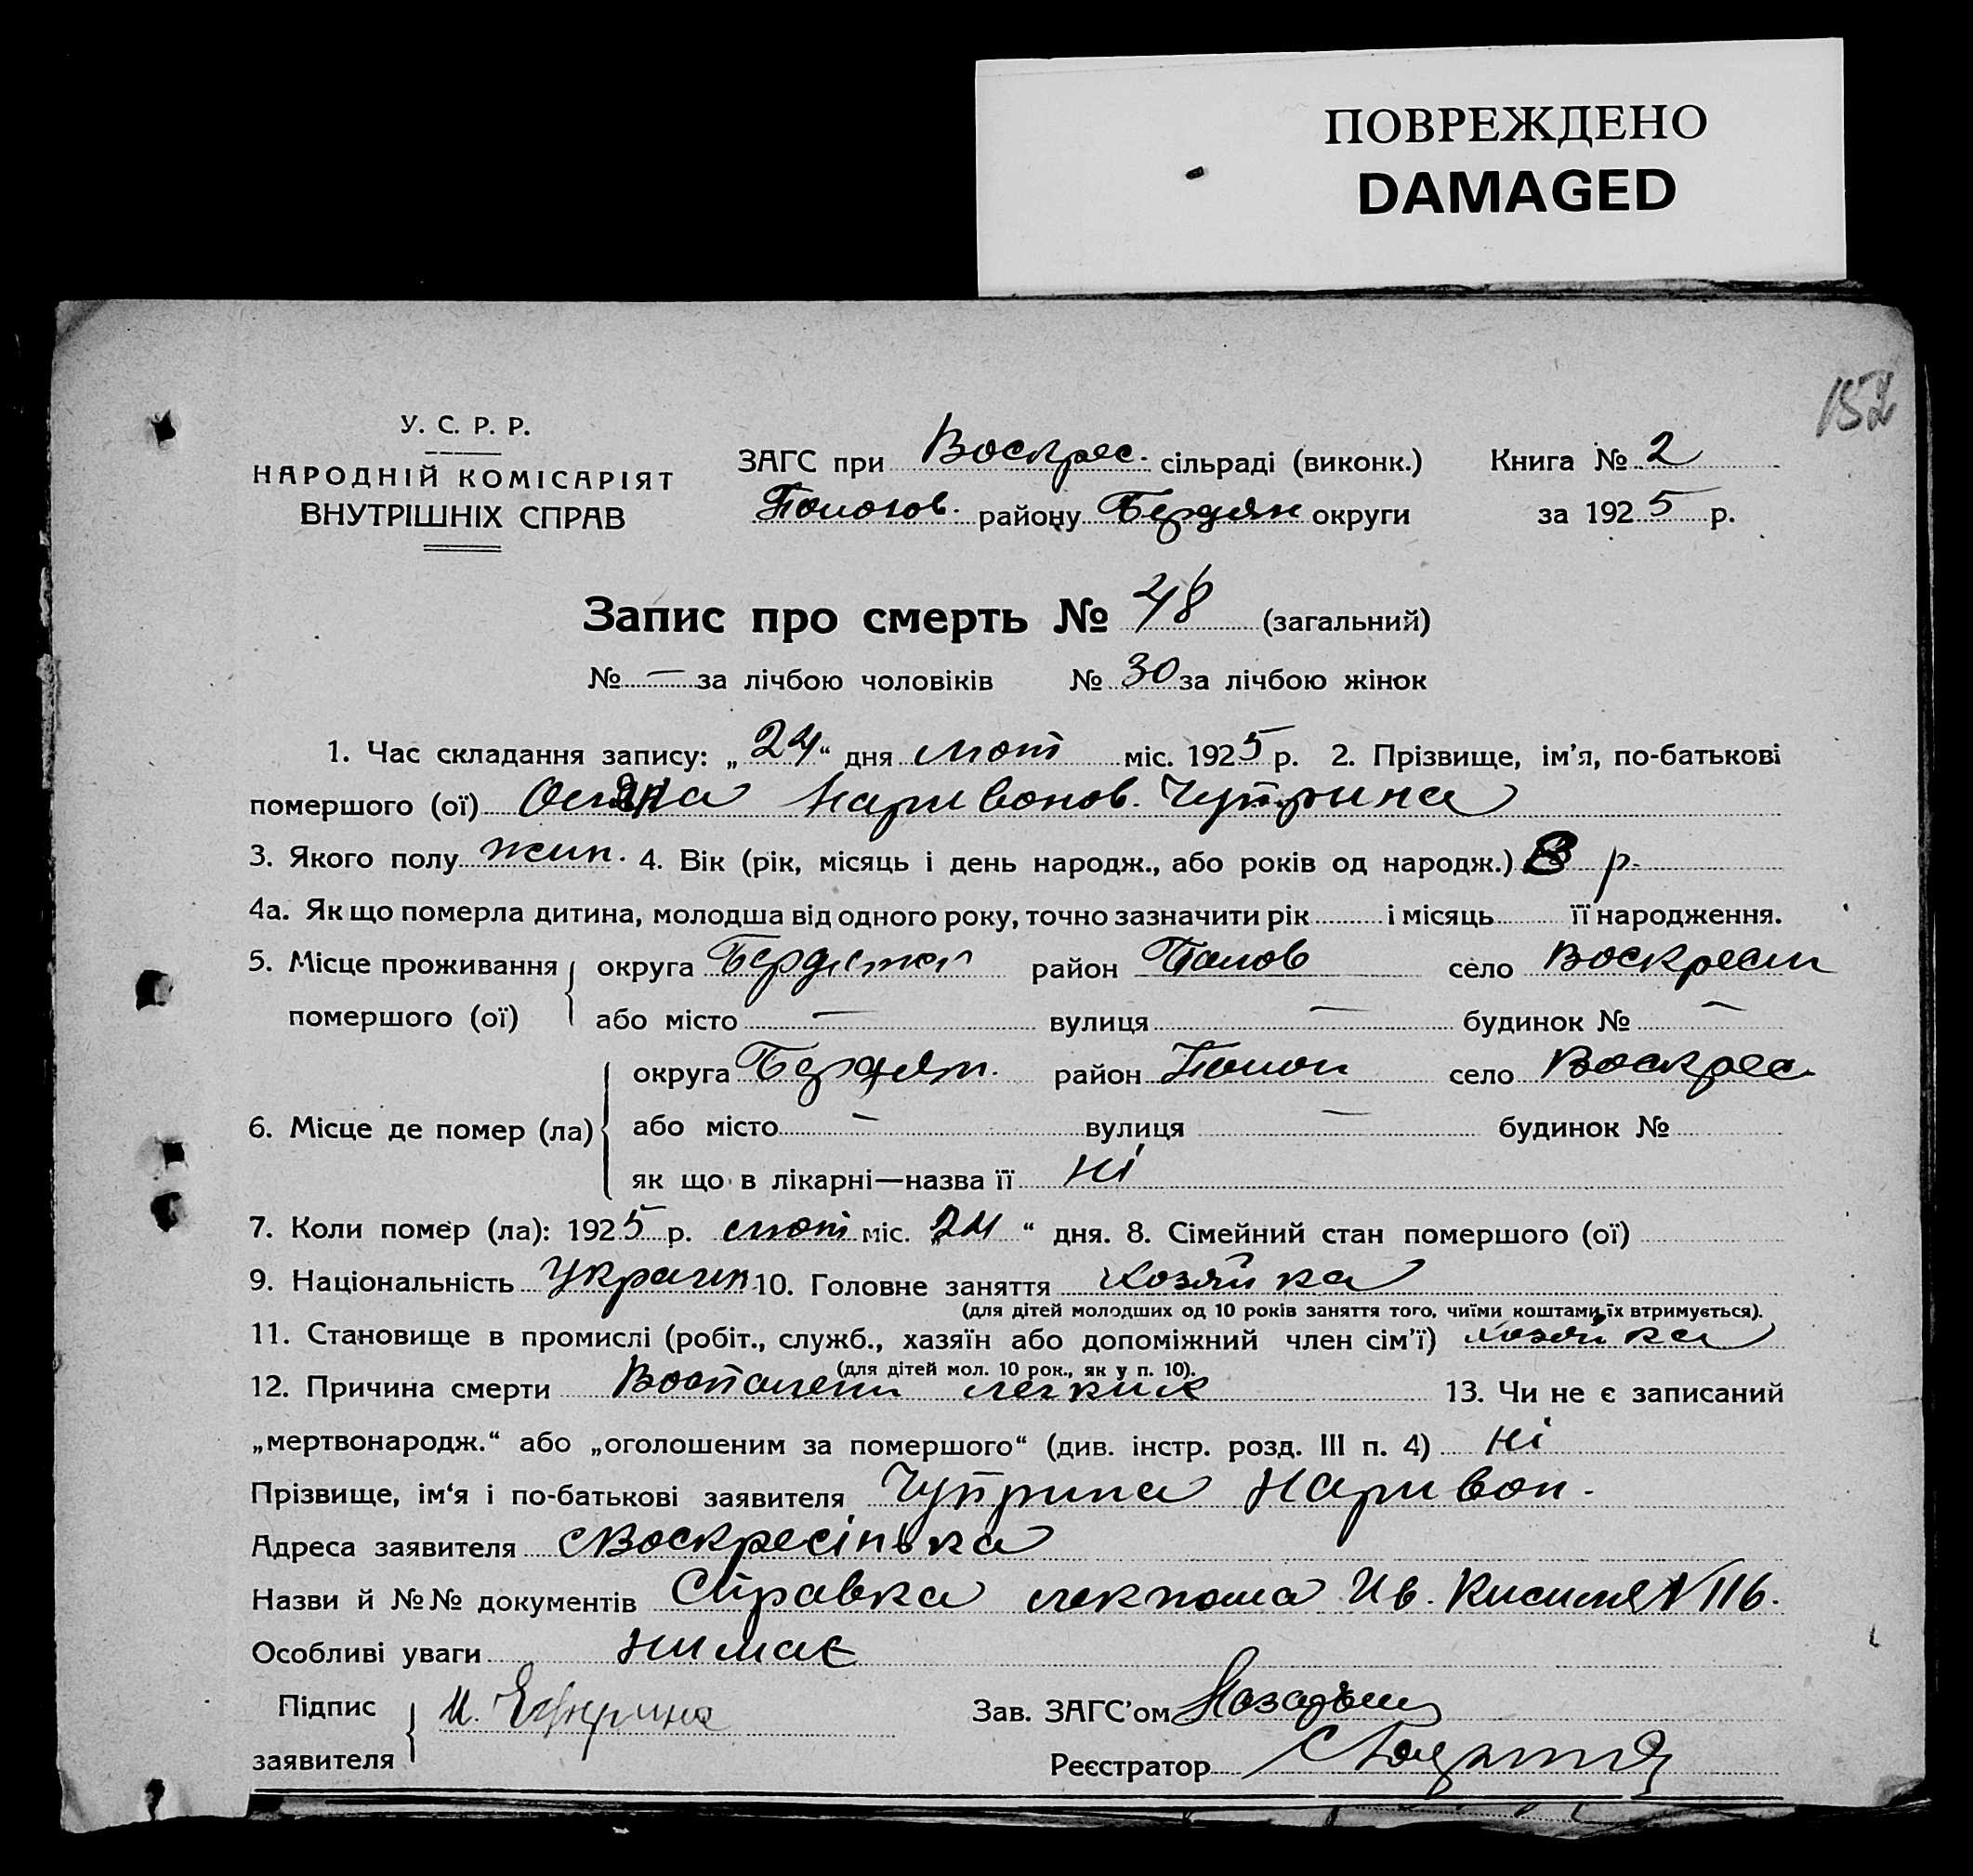 ПОВРЕЖДЕНО
DAMAGED
152
У. С. Р. Р.
НАРОДНІЙ КОМІСАРІЯТ
ВНУТРІШНІХ СПРАВ
ЗАГС при Воскрес. сільраді (виконк.) Книга № 2
Пологов. району Бердян округи за 1925 р.
Запис про смерть № 48 (загальний)
№ — за лічбою чоловіків № 30 за лічбою жінок
1. Час складання запису: „24“ дня лют міс. 1925 р. 2. Прізвище, ім'я, по-батькові
помершого (ої) Наривонов. Чуприна
3. Якого полу жин. 4. Вік (рік, місяць і день народж., або років од народж.) 8 р.
4а. Як що померла дитина, молодша від одного року, точно зазначити рік і місяць її народження.
5. Місце проживання округа район село
помершого (ої) або місто — вулиця — будинок № —
округа Бердян. район село Воскрес.
6. Місце де помер (ла) або місто — вулиця — будинок №
як що в лікарні—назва її ні
7. Коли помер (ла): 1925 р. лют міс. „24“ дня. 8. Сімейний стан помершого (ої)
9. Національність Украин 10. Головне заняття Хозяйка
(для дітей молодших од 10 років заняття того, чиїми коштами їх втримується).
11. Становище в промислі (робіт., служб., хазяїн або допоміжний член сім'ї) хозяйка
(для дітей мол. 10 рок., як у п. 10).
12. Причина смерти легких 13. Чи не є записаний
„мертвонародж.“ або „оголошеним за помершого“ (див. інстр. розд. III п. 4) ні
Прізвище, ім'я і по-батькові заявителя Чуприна Наривон.
Адреса заявителя Воскресінька
Назви й №№ документів Справка лекпома Ив. Кисиля N 116.
Особливі уваги нимає
Підпис Зав. ЗАГС'ом
заявителя Н. Чуприна
Реєстратор